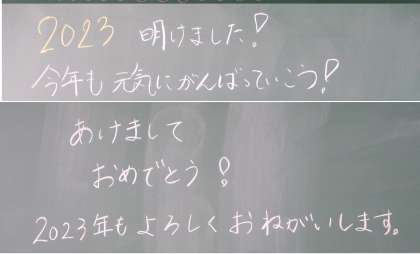 2023 明けました!
今年も元気にがんばっていこう!
あけまして
おめでとう!
2023年もよろしくおねがいします。